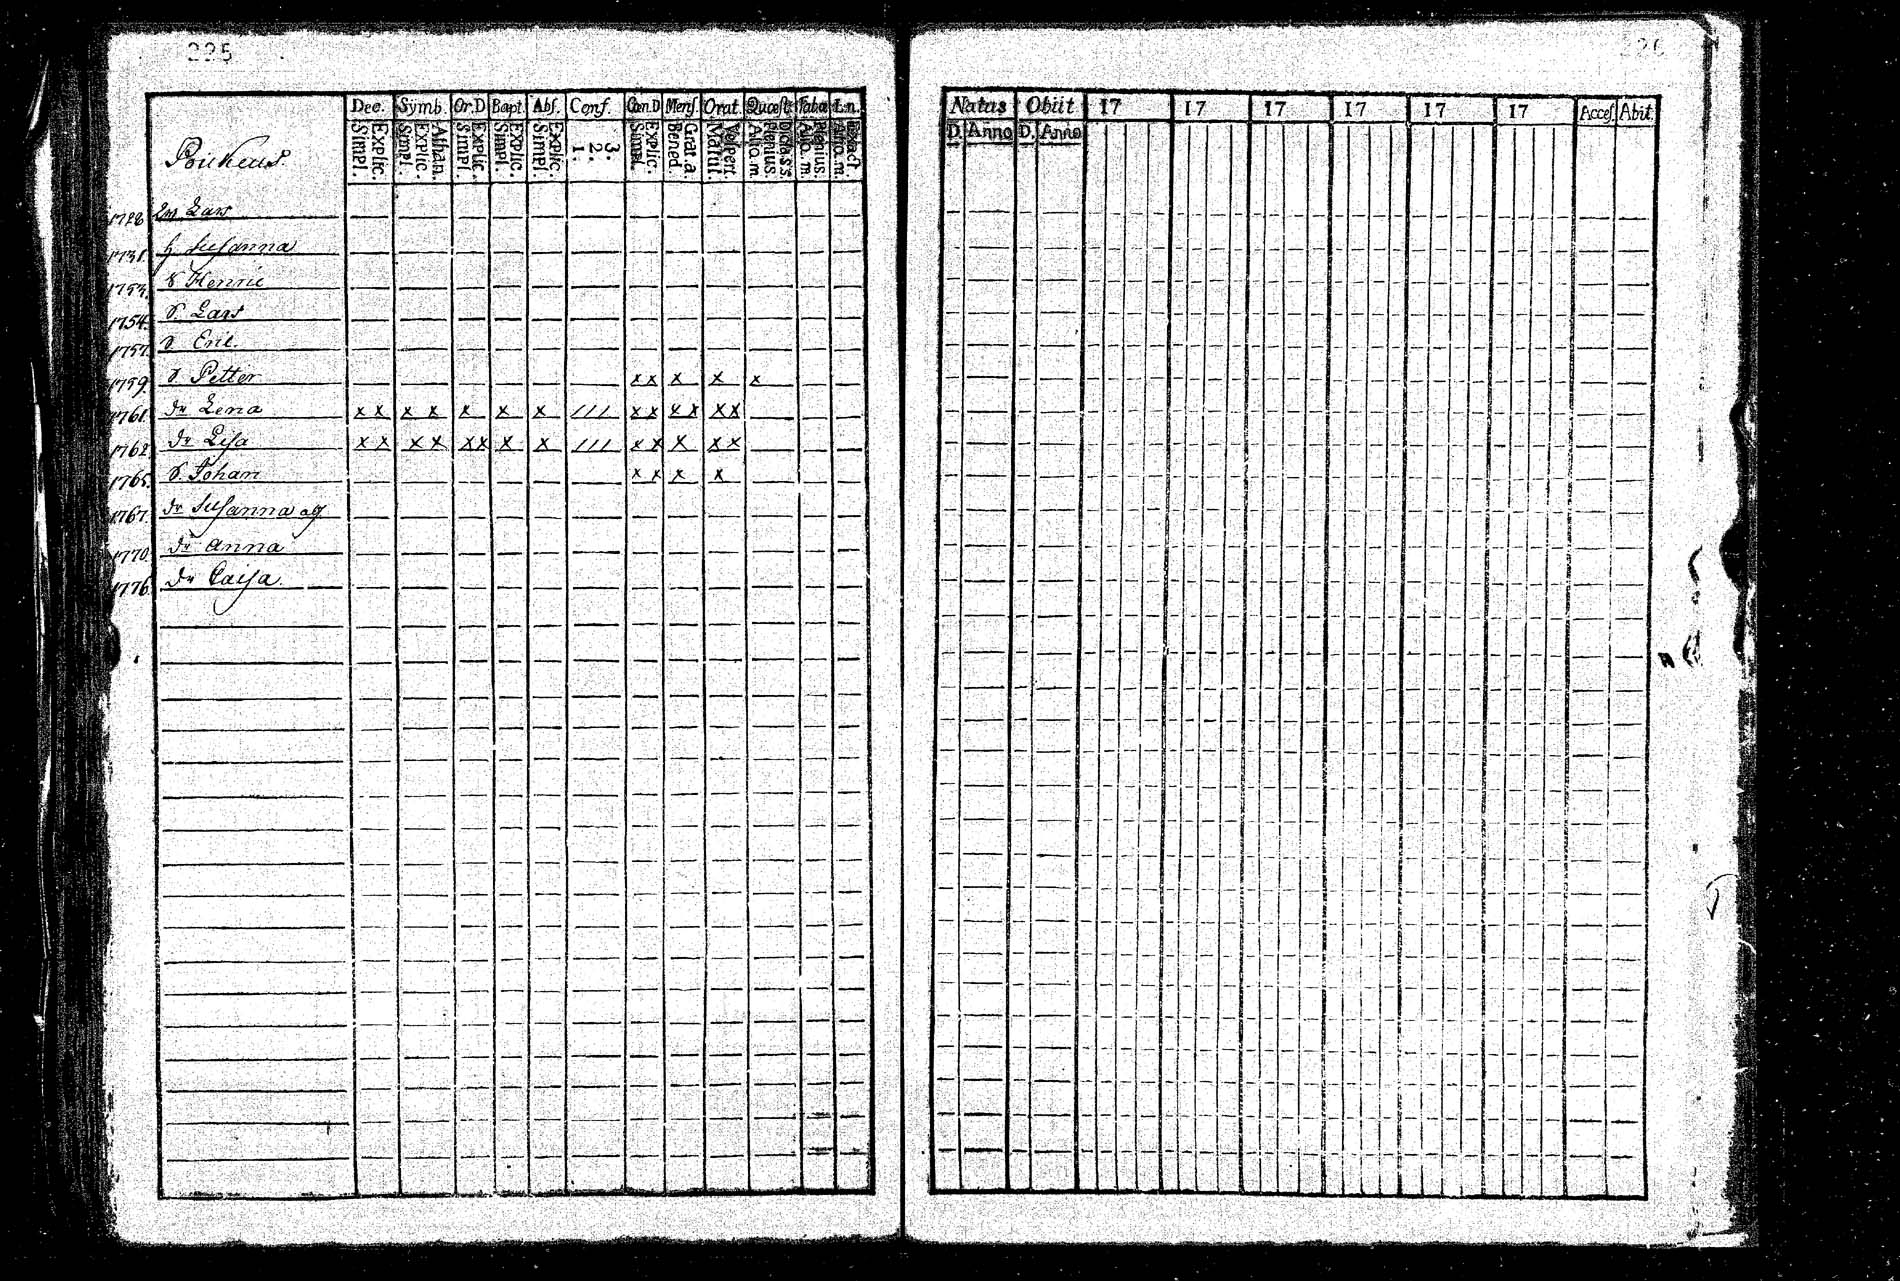 225
Dec. Symb. Or.D Bapt. Abs. Conf. Cœn.D Mens. Orat. Quœst. Tabœ L.n.
Simpl. Explic. Simpl. Explic. Athan. Simpl. Explic. Simpl. Explic. Simpl. Explic. 1. 2. 3. Simpl. Explic. Bened. Grat.a. Matut. Vespert. Aliq.m. Plenius. Aliq.m. Plenius. Exact.
1728 Lars
1731. h. Susanna
1753. S Henric
1754. S. Lars
1757. S. Eric.
1759 S. Petter x x x x x
1761. dr Lena x x x x x x x / / / x x x x x x
1762. dr Lisa x x x x x x x x / / / x x x x x
1765. S. Johan x x x x
1767. dr Susanna
1770. dr Anna
1776. dr Caisa.
226
Natus Obiit 17 17 17 17 17 17 Acces. Abit.
D. Anno D. Anno